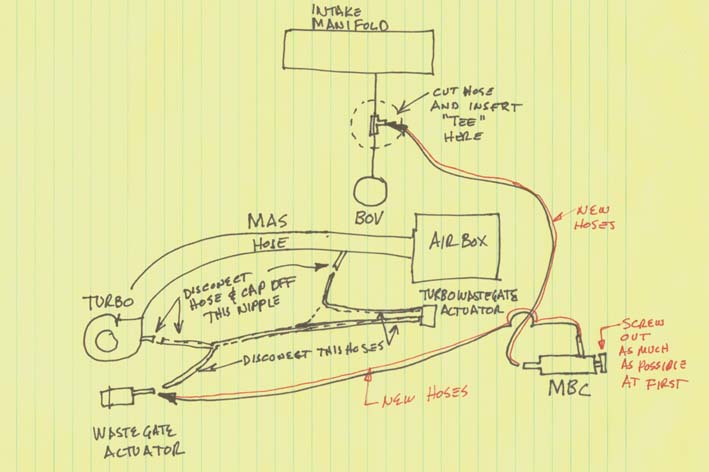 INTAKE
MANIFOLD
CUT HOSE
AND INSERT
"TEE"
HERE
BOV
NEW
HOSES
MAS
HOSE
AIR BOX
DISCONECT
HOSE & CAP OFF
THIS NIPPLE
TURBO
TURBO WASTEGATE
ACTUATOR
DISCONECT THIS HOSES
SCREW
OUT
AS MUCH
AS POSSIBLE
AT FIRST
MBC
NEW HOSES
WASTEGATE
ACTUATOR